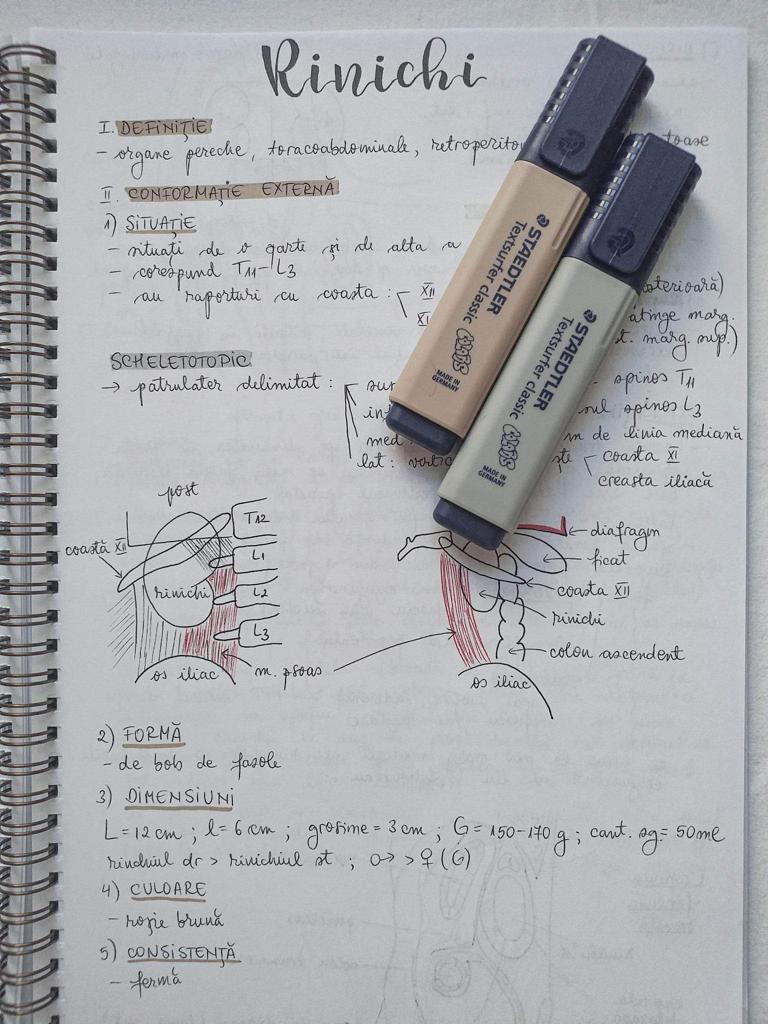 Rinichi
I. DEFINIȚIE
- organe pereche, toracoabdominale, retroperito toase
II. CONFORMAȚIE EXTERNĂ
1) SITUAȚIE
- situați de o parte și de alta a
- corespund T11-L3
- au raporturi cu coasta : XII osterioară)
XI atinge marg.
st. marg. sup.)
SCHELETOTOPIC
→ patrulater delimitat : sup spinos T11
inf sul spinos L3
med m de linia mediană
lat: vertic ște coasta XI
creasta iliacă
post
coastă XII
T12
L1
L2
L3
rinichi
os iliac
m. psoas
diafragm
ficat
coasta XII
rinichi
colon ascendent
os iliac
2) FORMĂ
- de bob de fasole
3) DIMENSIUNI
L=12 cm ; l=6 cm ; grosime = 3 cm ; G = 150-170 g ; cant. sg = 50 ml
rinichiul dr > rinichiul st ; ♂ > ♀ (G)
4) CULOARE
- roșie brună
5) CONSISTENȚĂ
- fermă
STAEDTLER
Textsurfer classic
MADE IN
GERMANY
STAEDTLER
Textsurfer classic
MADE IN
GERMANY